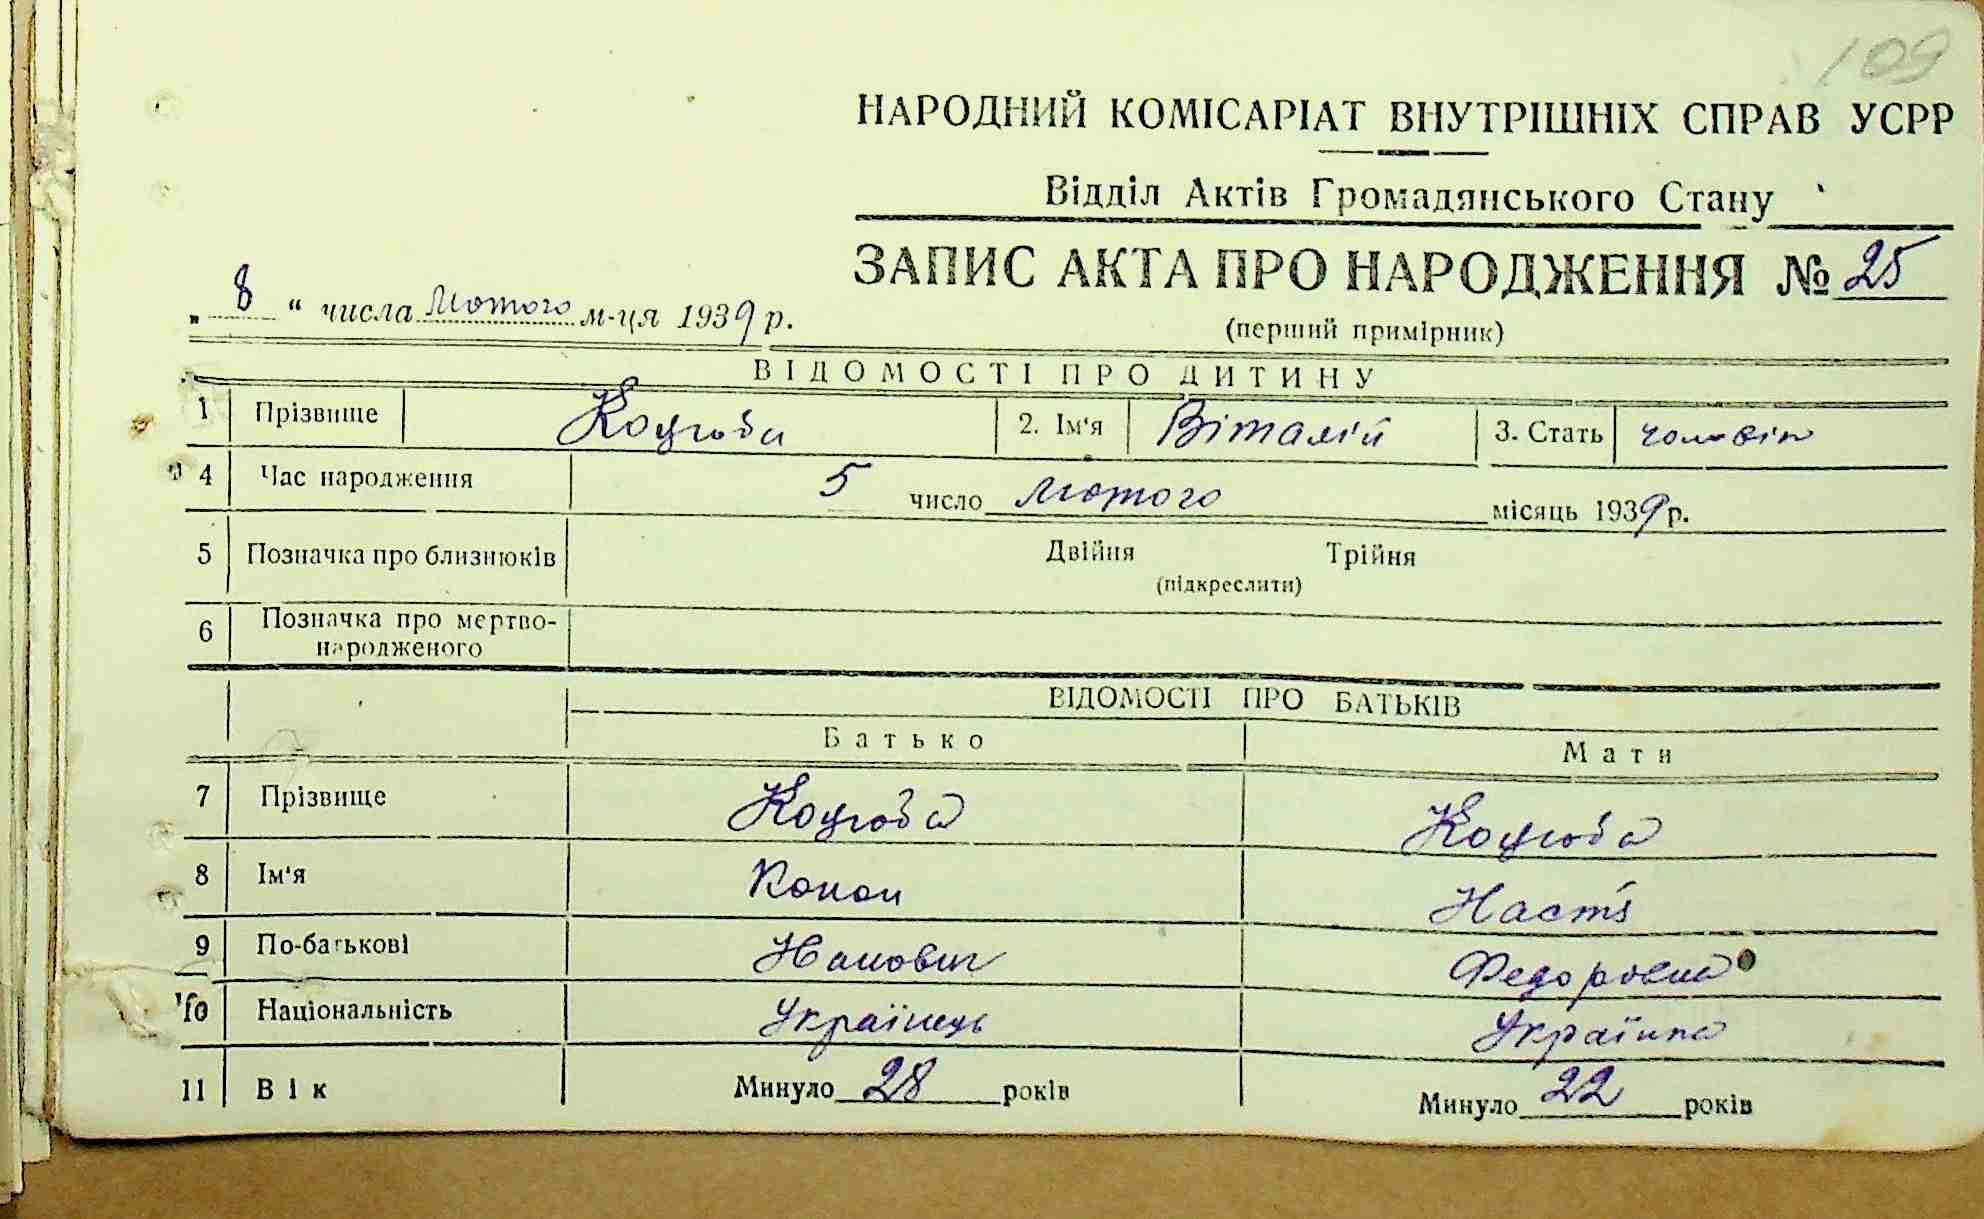 109
НАРОДНИЙ КОМІСАРІАТ ВНУТРІШНІХ СПРАВ УСРР
Відділ Актів Громадянського Стану
ЗАПИС АКТА ПРО НАРОДЖЕННЯ № 25
„ 8 “ числа лютого м-ця 1939 р.
(перший примірник)
ВІДОМОСТІ ПРО ДИТИНУ
1 Прізвище Коцюба 2. Ім‘я Віталій 3. Стать чоловік
4 Час народження 5 число лютого місяць 1939 р.
5 Позначка про близнюків Двійня Трійня
(підкреслити)
6 Позначка про мертво-
народженого
ВІДОМОСТІ ПРО БАТЬКІВ
Батько Мати
7 Прізвище Коцюба Коцюба
8 Ім‘я Конон Настя
9 По-батькові Федоровна
10 Національність Українець Українка
11 Вік Минуло 28 років Минуло 22 років